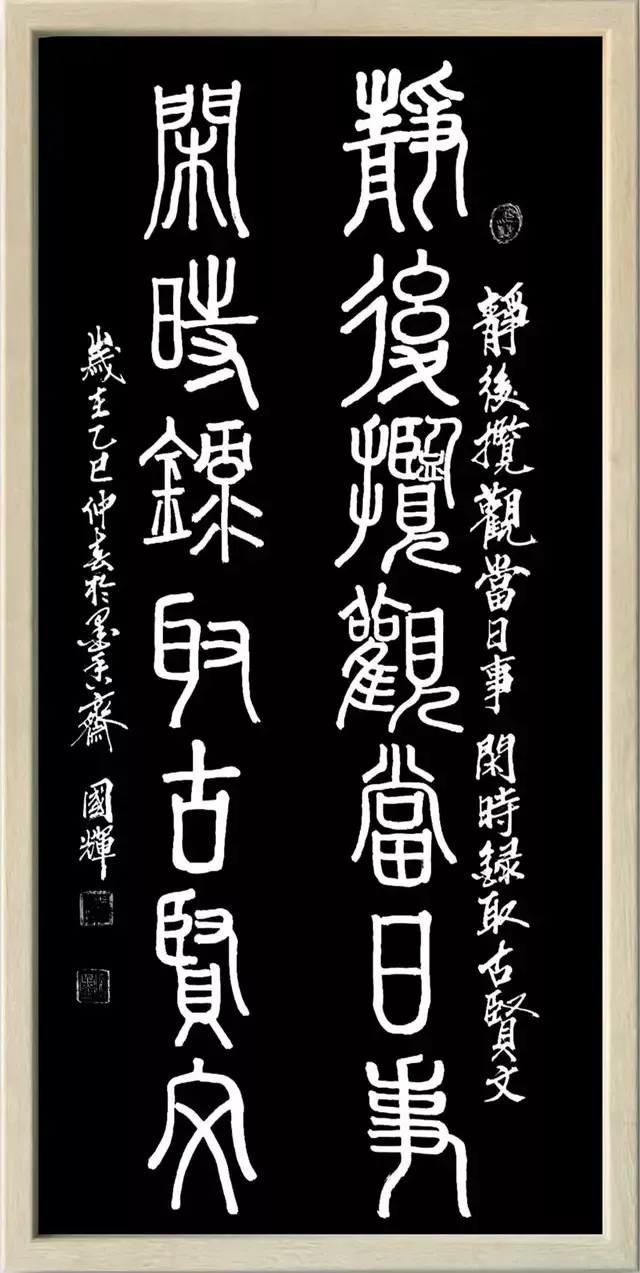 靜後攬觀當日事 閑時錄取古賢文
靜後攬觀當日事
閑時錄取古賢文
歲在乙巳仲春於墨香齋 國輝